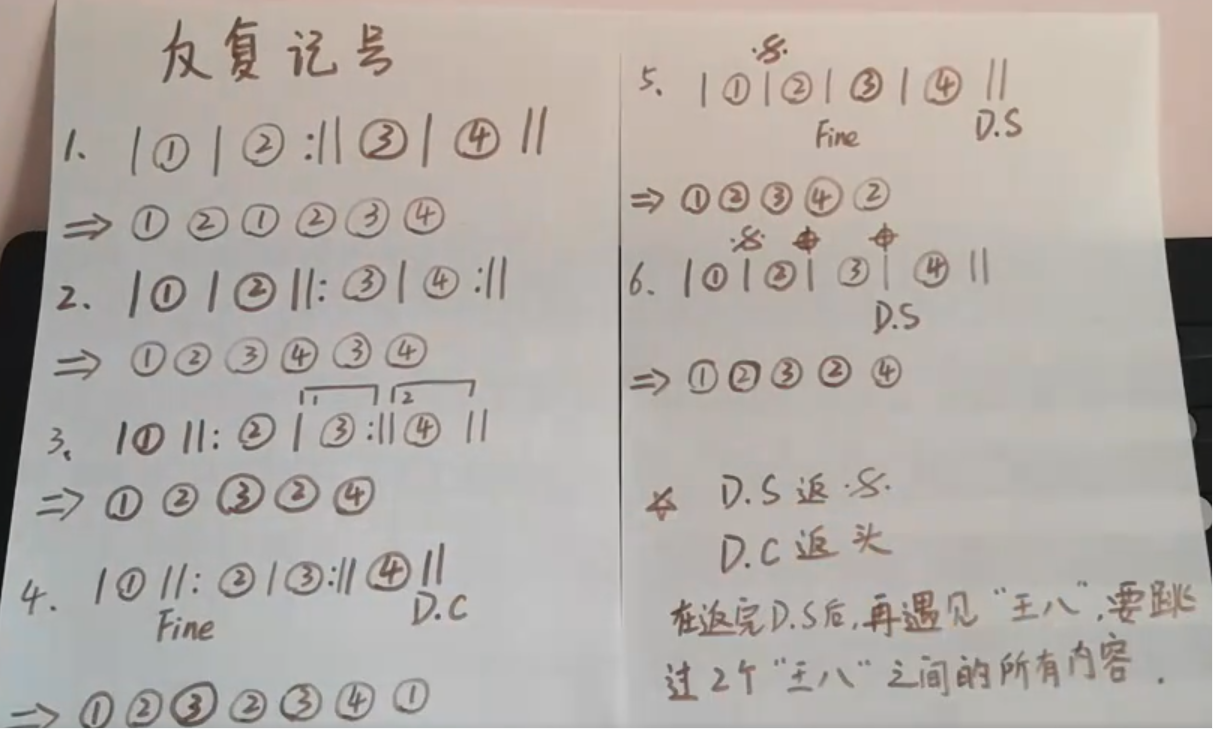 反复记号
1. | ① | ② :|| ③ | ④ ||
⇒ ① ② ① ② ③ ④
2. | ① | ② ||: ③ | ④ :||
⇒ ① ② ③ ④ ③ ④
1. 2.
3、 | ① ||: ② | ③ :|| ④ ||
⇒ ① ② ③ ② ④
4. | ① ||: ② | ③ :|| ④ ||
Fine D.C
⇒ ① ② ③ ② ③ ④ ①
𝄋
5、 | ① | ② | ③ | ④ ||
Fine D.S
⇒ ① ② ③ ④ ②
𝄋 𝄌 𝄌
6. | ① | ② | ③ | ④ ||
D.S
⇒ ① ② ③ ② ④
☆ D.S 返 𝄋
D.C 返 头
在返完D.S后,再遇见“王八”,要跳
过2个“王八”之间的所有内容.